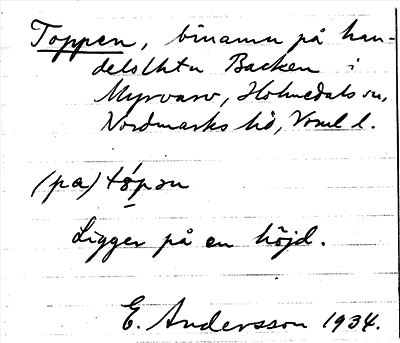 Toppen, binamn på han-
delslhtn Backen i
Myrvarv, Holmedals sn,
Nordmarks hd, Vrml l.
(pa) tǿpən
Ligger på en höjd.
E. Andersson 1934.